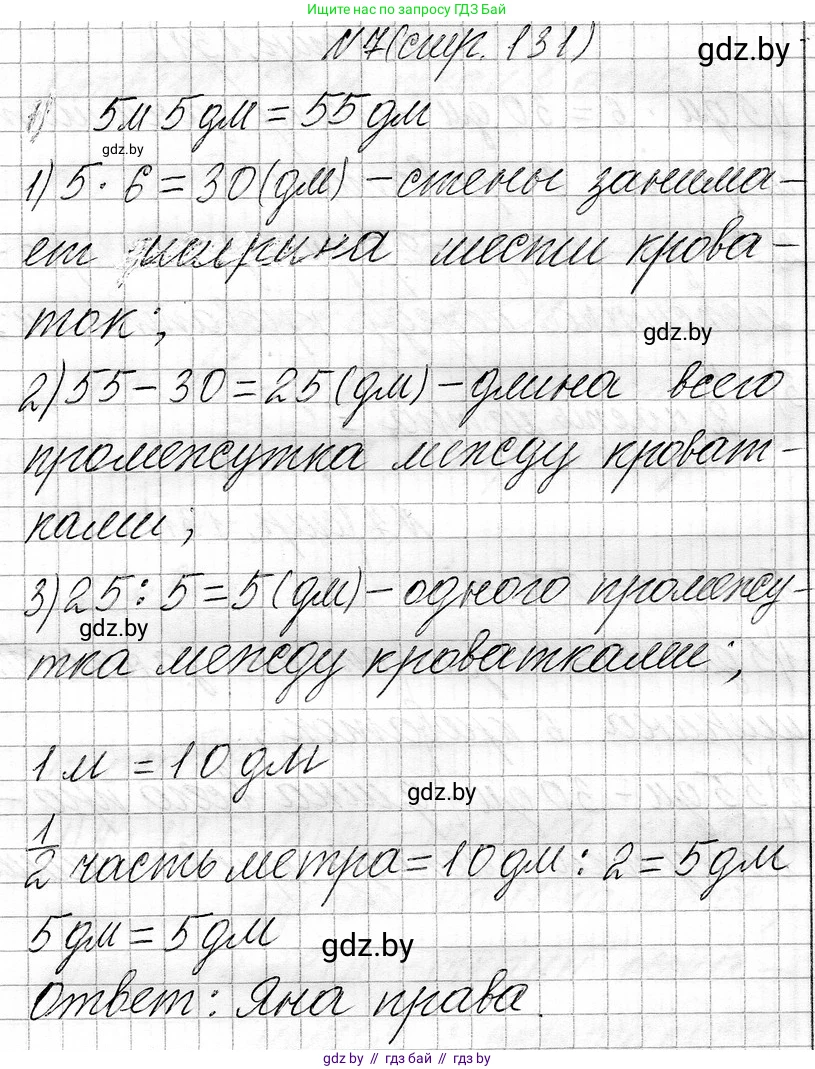 Ищите нас по запросу ГДЗ Бай
№7(стр. 131)
gdz.by
5м 5дм = 55дм
gdz.by
1) 5 · 6 = 30(дм) – стены занима-
ет ширина шести крова-
ток;
gdz.by
2) 55 – 30 = 25(дм) – длина всего
промежутка между кроват-
ками;
3) 25 : 5 = 5(дм) – одного промежу-
gdz.by
тка между кроватками;
1м = 10дм
gdz.by
1/2 часть метра = 10дм : 2 = 5дм
5дм = 5дм
gdz.by
Ответ: Яна права.
gdz.by // гдз бай // gdz.by